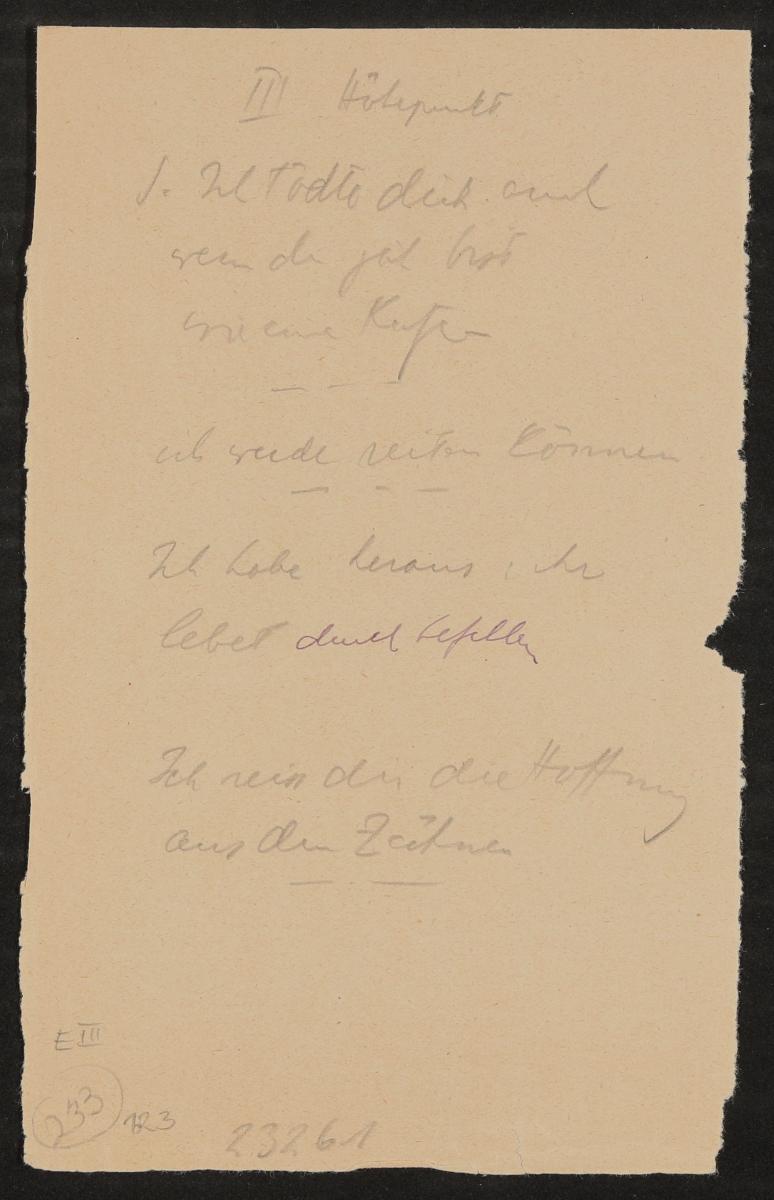 III Höhepunkt
1. Ich tödte dich und
wenn du gut bist
wie eine
ich werde reiten können
Ich habe heraus : ihr
lebet durch
Ich reiss dir die Hoffnung
aus den Zähnen
E III
233 123
23261